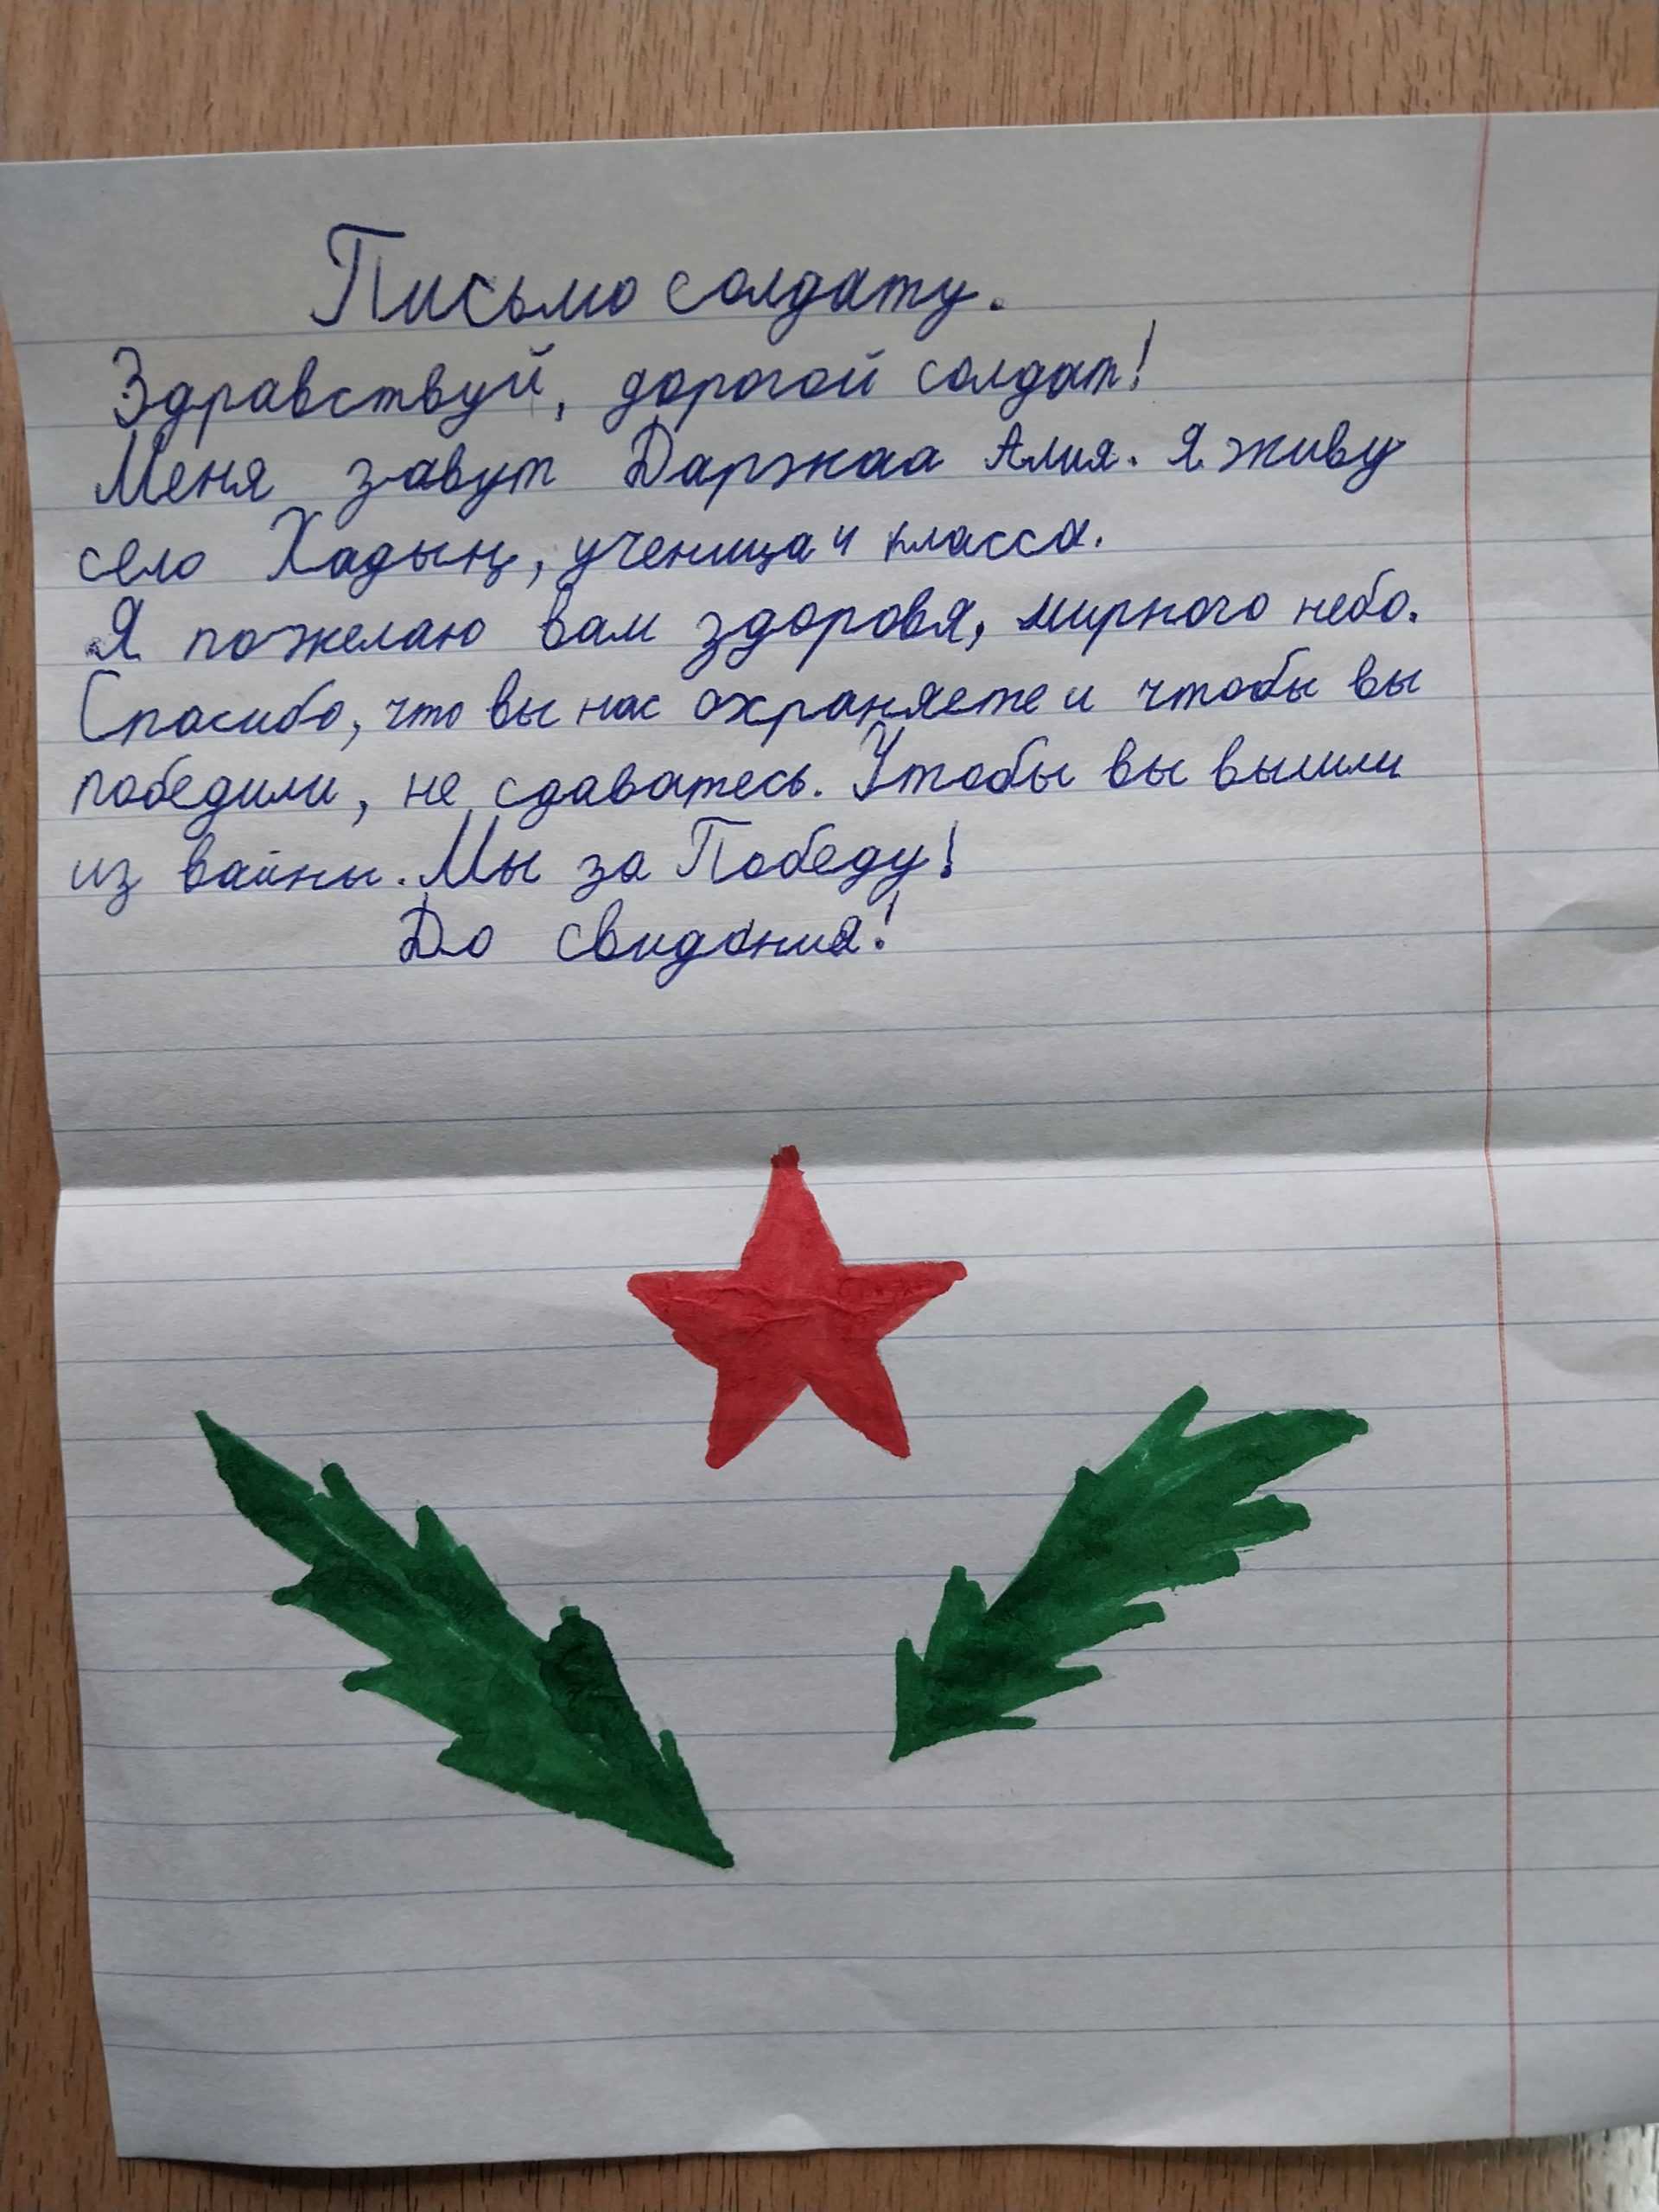 Письмо солдату.
Здравствуй, дорогой солдат!
Меня завут Даржаа Алия. Я живу
село Хадың, ученица 4 класса.
Я пожелаю вам здоровя, мирного небо.
Спасибо, что вы нас охраняете и чтобы вы
победили, не сдаватесь. Чтобы вы вышли
из вайны. Мы за Победу!
До свидания!